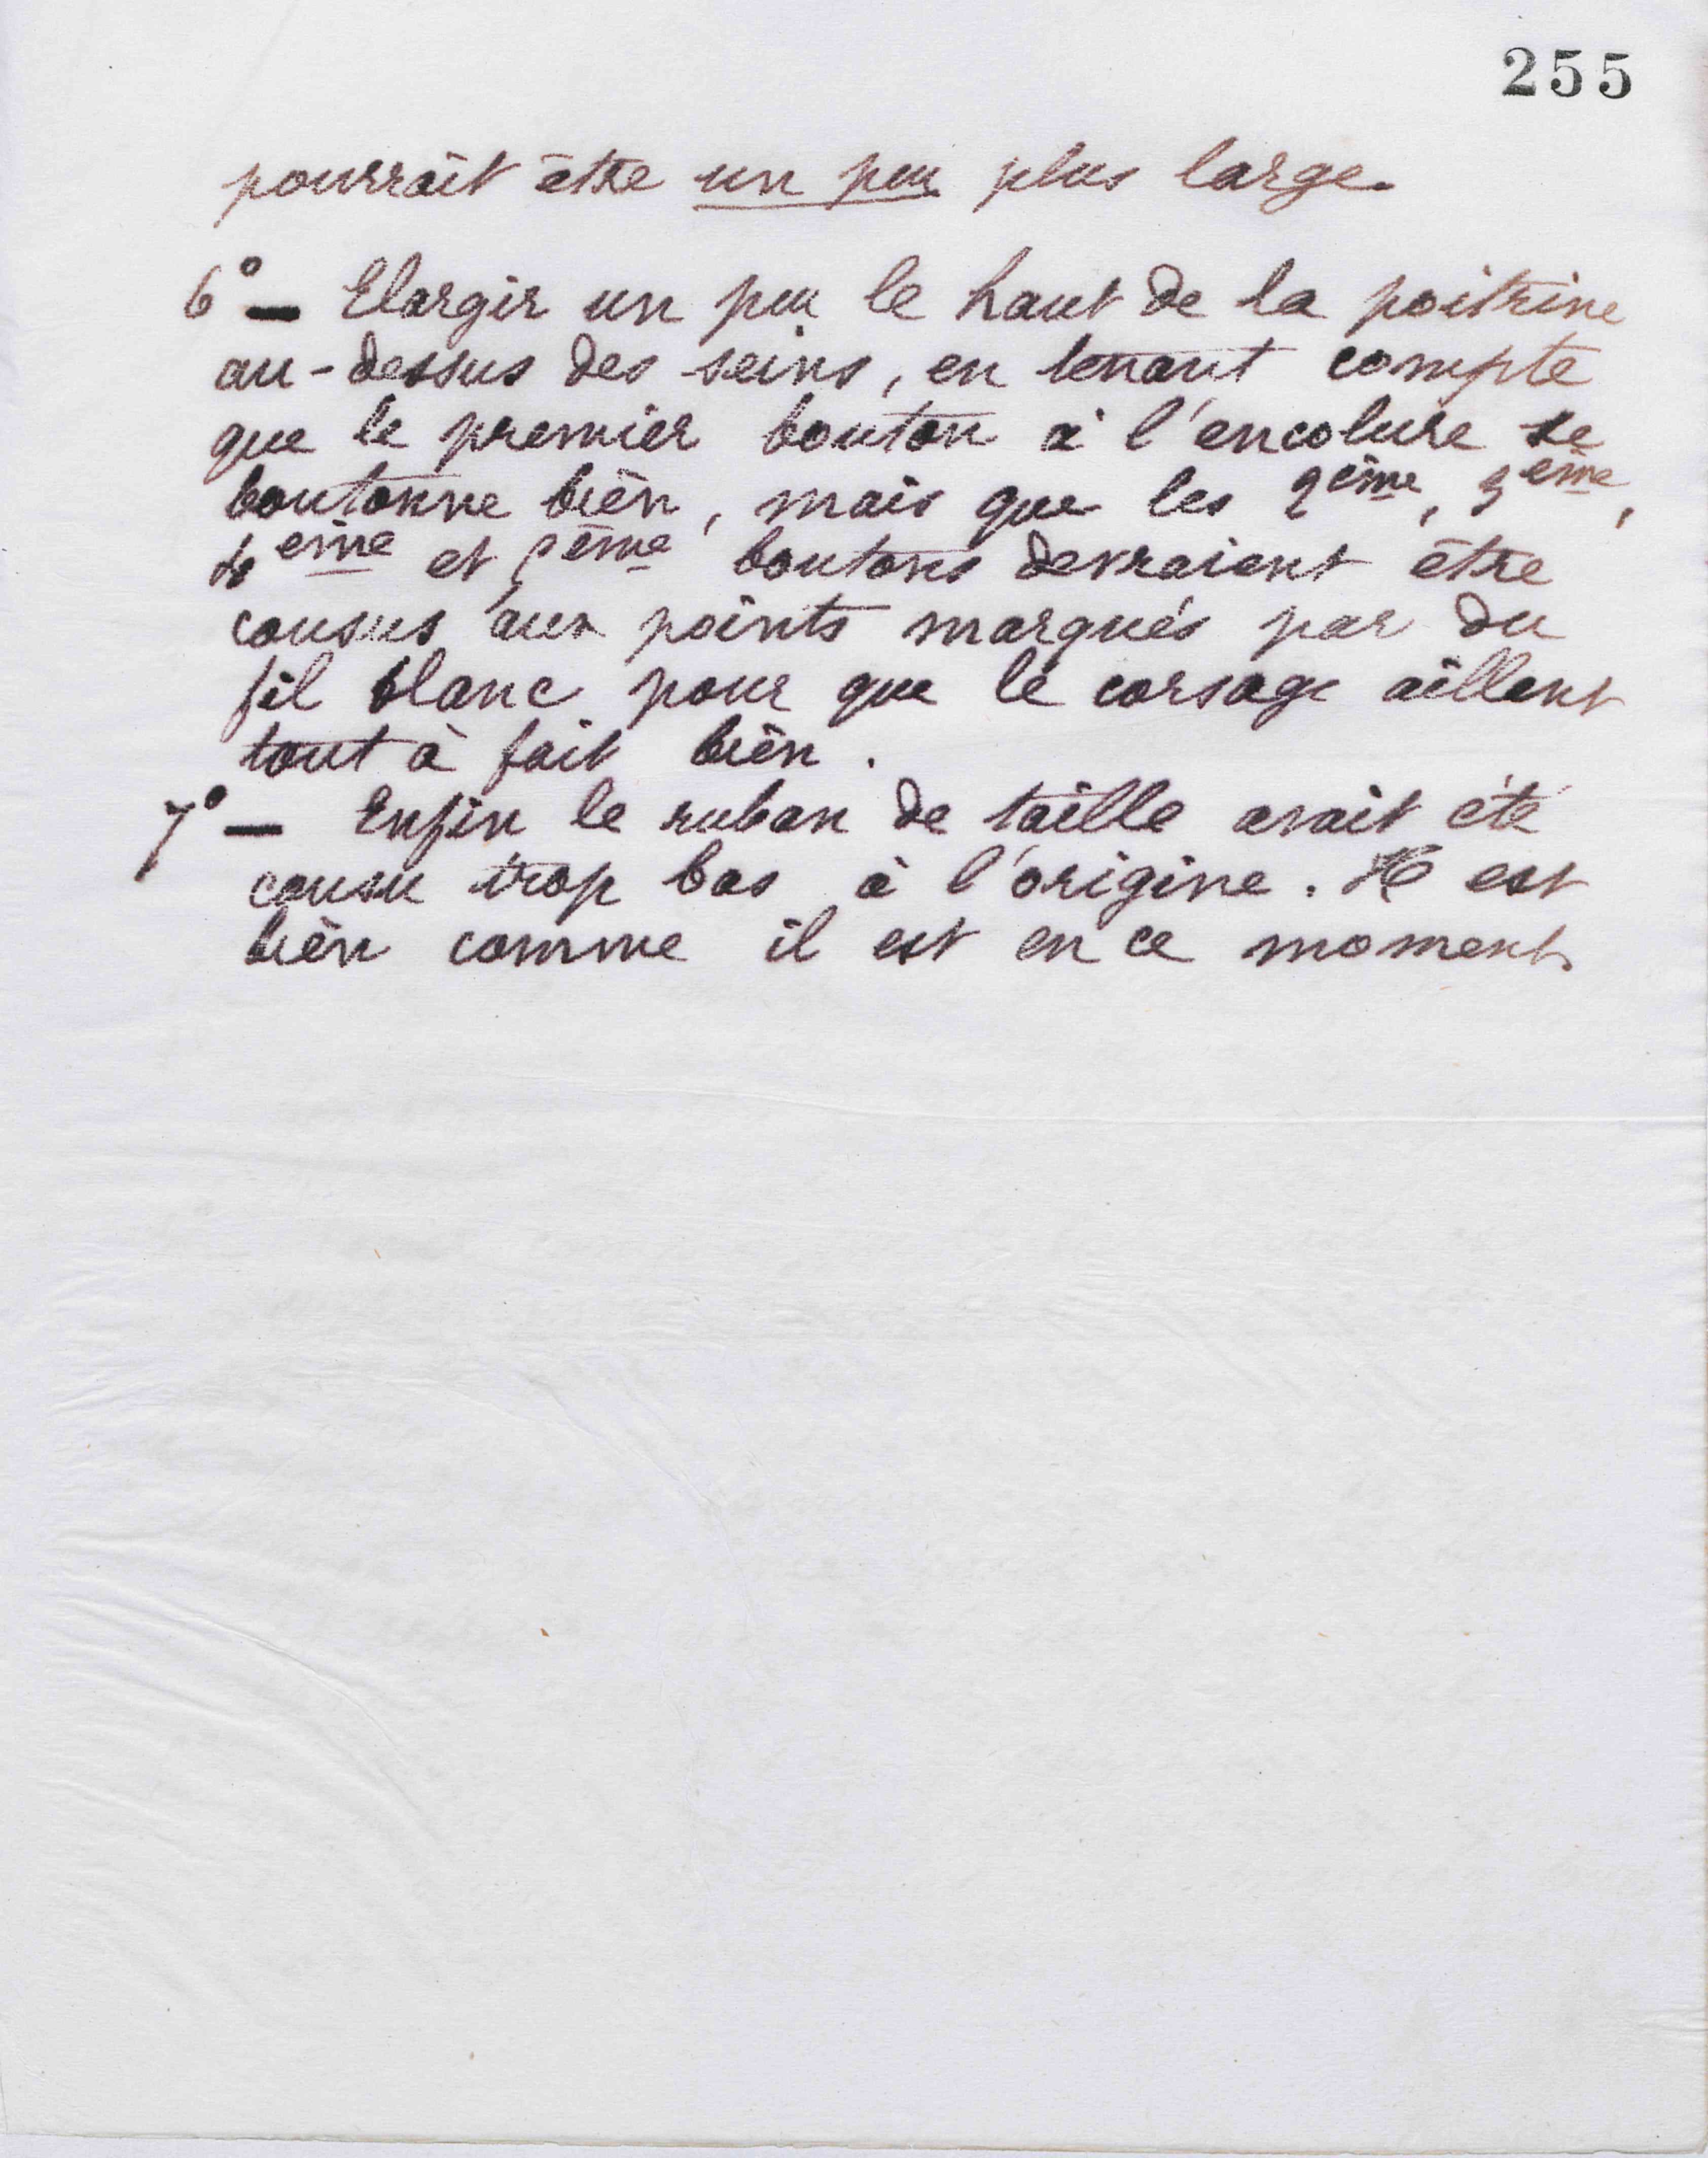 255
pourrait être un peu plus large.
6° - Elargir un peu le haut de la poitrine
au-dessus des seins, en tenant compte
que le premier bouton à l'encolure se
boutonne bien, mais que les 2ème, 3ème,
4ème et 5ème boutons devraient être
cousus aux points marqués par du
fil blanc pour que le corsage aillent
tout à fait bien.
7° - Enfin le ruban de taille avait été
cousu trop bas à l'origine. Il est
bien comme il est en ce moment.